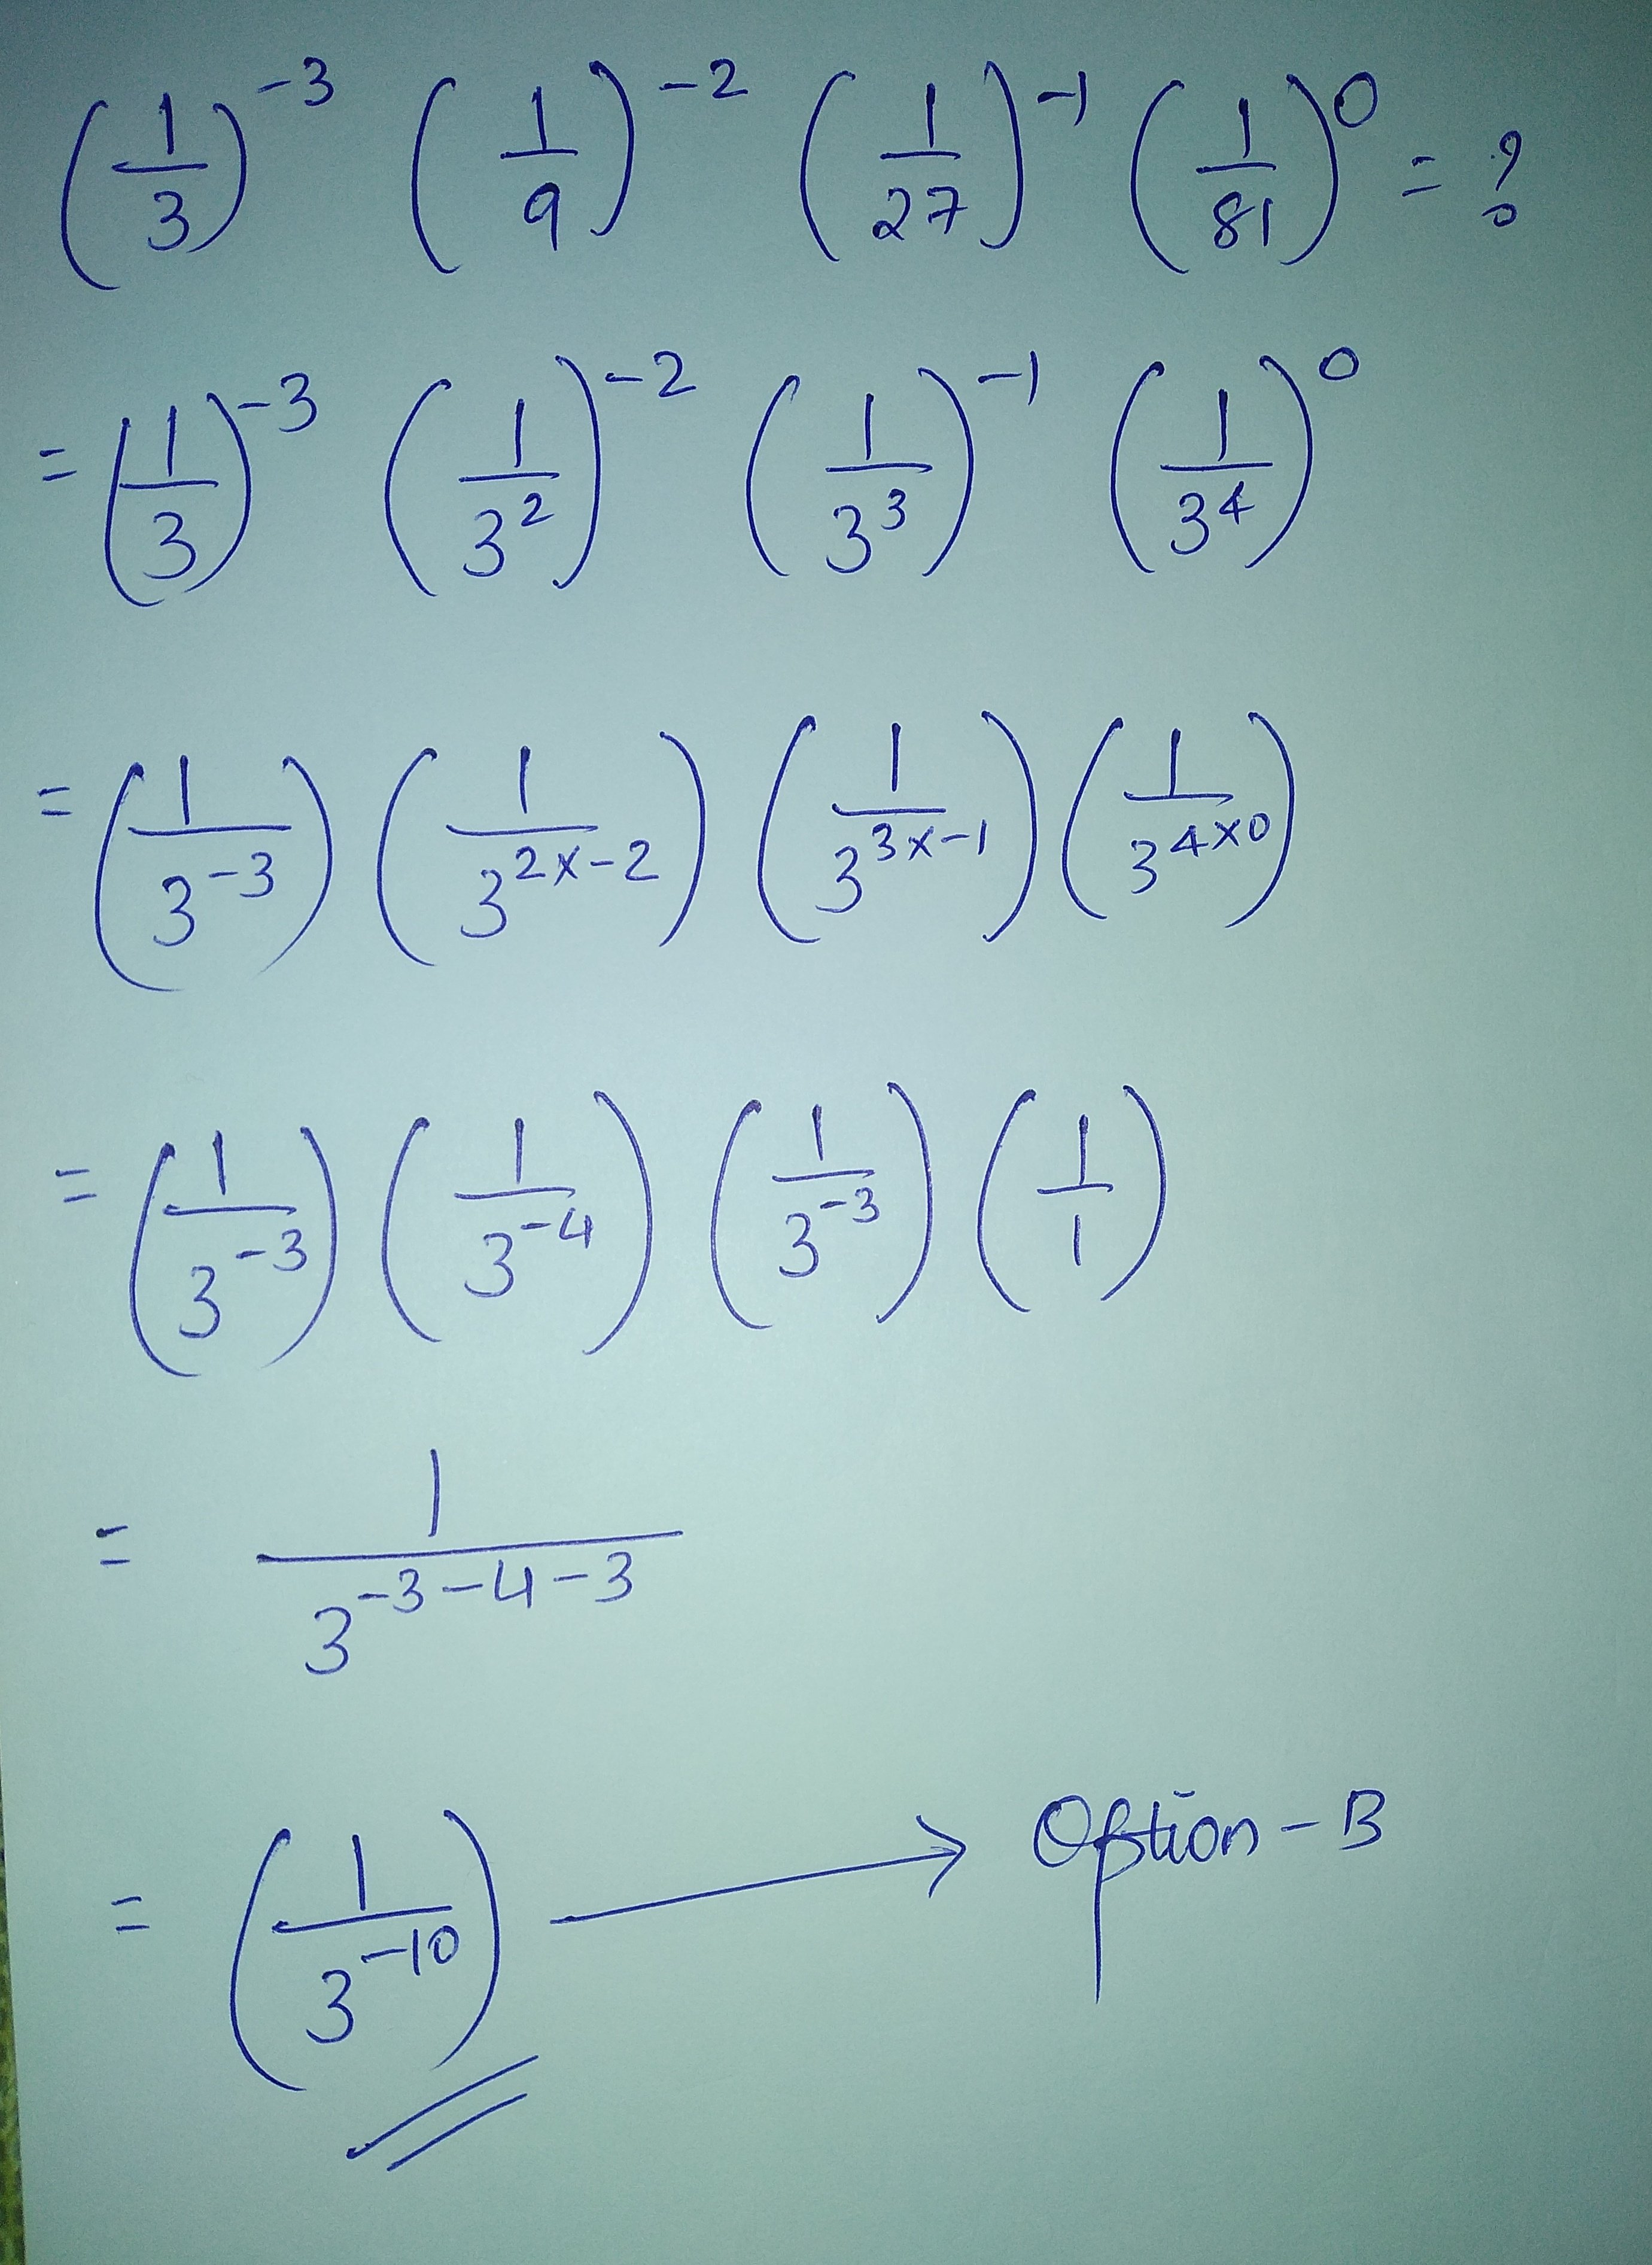 (1/3)^-3 (1/9)^-2 (1/27)^-1 (1/81)^0 = ?
= (1/3)^-3 (1/3^2)^-2 (1/3^3)^-1 (1/3^4)^0
= (1/3^-3) (1/3^2x-2) (1/3^3x-1) (1/3^4x0)
= (1/3^-3) (1/3^-4) (1/3^-3) (1/1)
= 1/3^-3-4-3
= (1/3^-10) → Option-B